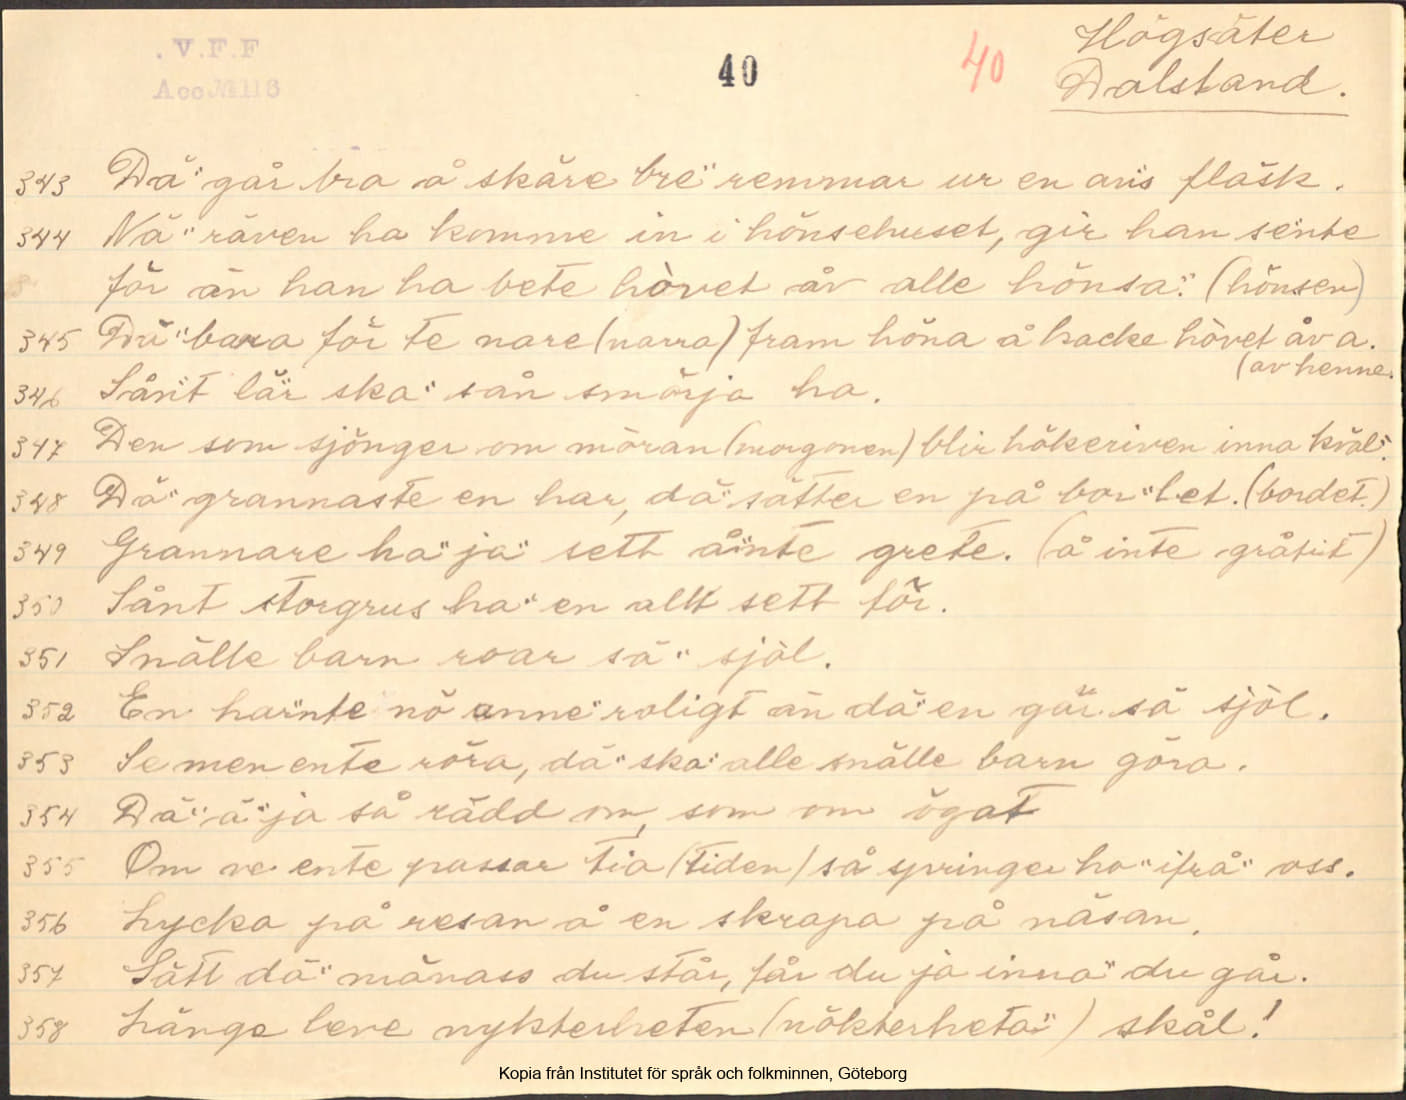 . V.F.F
Acc. N. 116
40
40
Högsäter
Dalsland.
343 Dä" går bra å skäre bre" remmar ur en ans fläsk.
344 Nä" räven ha komme in i hönsehuset, gir han sente
för än han ha bete hòvet åv alle hönsa". (hönsen)
345 Dä" bara för te nare (narra) fram höna å hacke hòvet åv a.
(av henne.
346 Sånt lär ska" sån smörja ha.
347 Den som sjönger om möran (morgonen) blir hökeriven inna kväl".
348 Dä" grannaste en har, dä" sätter en på bor"let. (bordet.)
349 Grannare ha" ja" sett å"nte grete. (å inte gråtit)
350 Sånt storgrus ha" en allt sett för.
351 Snälle barn roar sä" sjöl.
352 En har"nte nö anne" roligt än dä" en gär sä sjöl.
353 Se men ente röra, dä" ska" alle snälle barn göra.
354 Dä" ä" ja så rädd om, som om ögat
355 Om ve ente passar tia (tiden) så springer ho" ifrå" oss.
356 Lycka på resan å en skrapa på näsan.
357 Sätt dä" mänass du står, får du ja inna" du går.
358 Länge leve nykterheten (nökterheta") skål!
Kopia från Institutet för språk och folkminnen, Göteborg